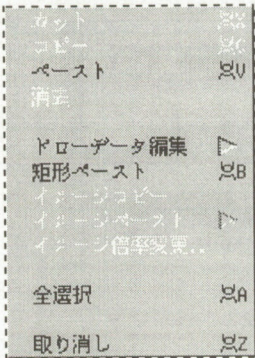 カット
コピー
ペースト V
消去
ドローデータ編集
矩形ペースト B
イメージコピー
イメージペースト
イメージ倍率変更..
全選択 A
取り消し Z